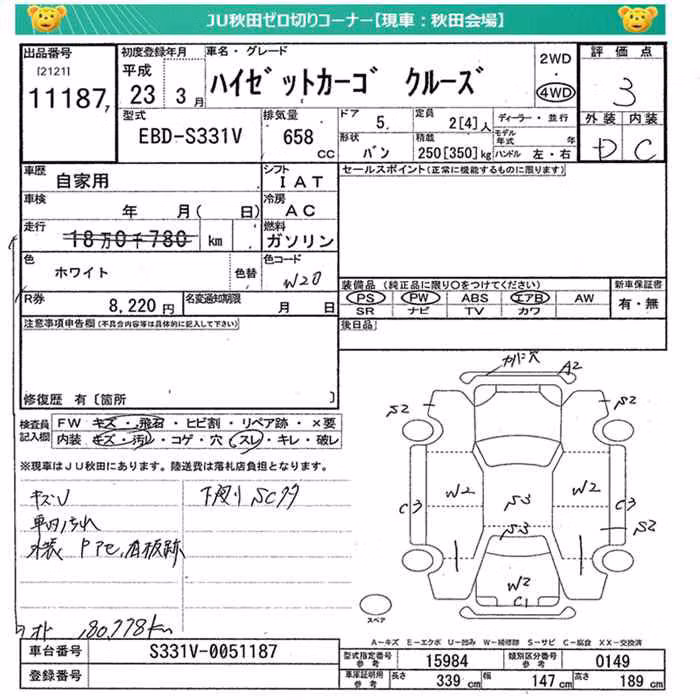 JU秋田ゼロ切りコーナー【現車:秋田会場】
出品番号 初度登録年月 車名・グレード 評価点
[2121] 平成 ハイゼットカーゴ クルーズ 2WD 3
11187 23 3月 4WD 外装 内装
型式 排気量 ドア 定員 ディーラー・並行 D C
EBD-S331V 658 cc 5 2[4]人 モデル年式 年
形状 積載 バン 250[350]kg ハンドル 左・右
車歴 自家用 シフト IAT セールスポイント(正常に機能するものに限ります)
車検 年 月( 日) 冷房 AC
走行 18万0千780 km 燃料 ガソリン
色 ホワイト 色替 色コード W20 装備品(純正品に限り○をつけてください) 新車保証書
R券 8,220円 名変通知期限 月 日 PS PW ABS エアB AW 有・無
SR ナビ TV カワ
注意事項申告欄(不具合内容等は具体的に記入して下さい) 後日品
修復歴 有〔箇所 〕
検査員記入欄 FW キズ・飛石・ヒビ割・リペア跡・×要
内装 キズ・汚レ・コゲ・穴・スレ・キレ・破レ
※現車はJU秋田にあります。陸送費は落札店負担となります。
A2
S2 S2
W2 S3 W2
C3 C3
S3 S2
W2
C1
車内汚れ
スペア
A-キズ E-エクボ U-凹み W-補修跡 S-サビ C-腐食 XX-交換済
車台番号 S331V-0051187 型式指定番号 参考 15984 類別区分番号 参考 0149
登録番号 車庫証明用 参考 長さ 339cm 幅 147cm 高さ 189cm